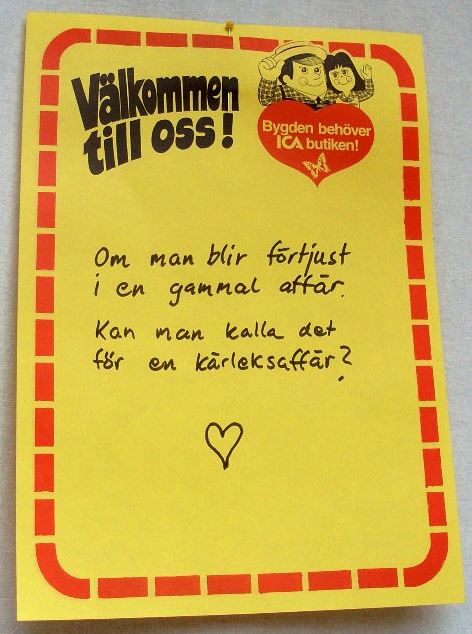 Välkommen
till oss!
Bygden behöver
ICA butiken!
Om man blir förtjust
i en gammal affär.
Kan man kalla det
för en kärleksaffär?